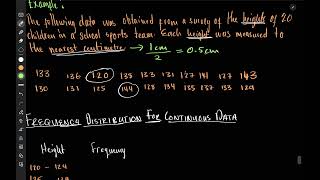 Example:
The following data was obtained from a survey of the heights of 20
children in a school sports team. Each height was measured to
the nearest centimetre → 1cm/2 = 0.5cm
133 136 120 135 133 131 127 141 127 143
130 131 125 144 128 133 129
FREQUENCY DISTRIBUTION FOR CONTINUOUS DATA
Height Frequency
120 - 124